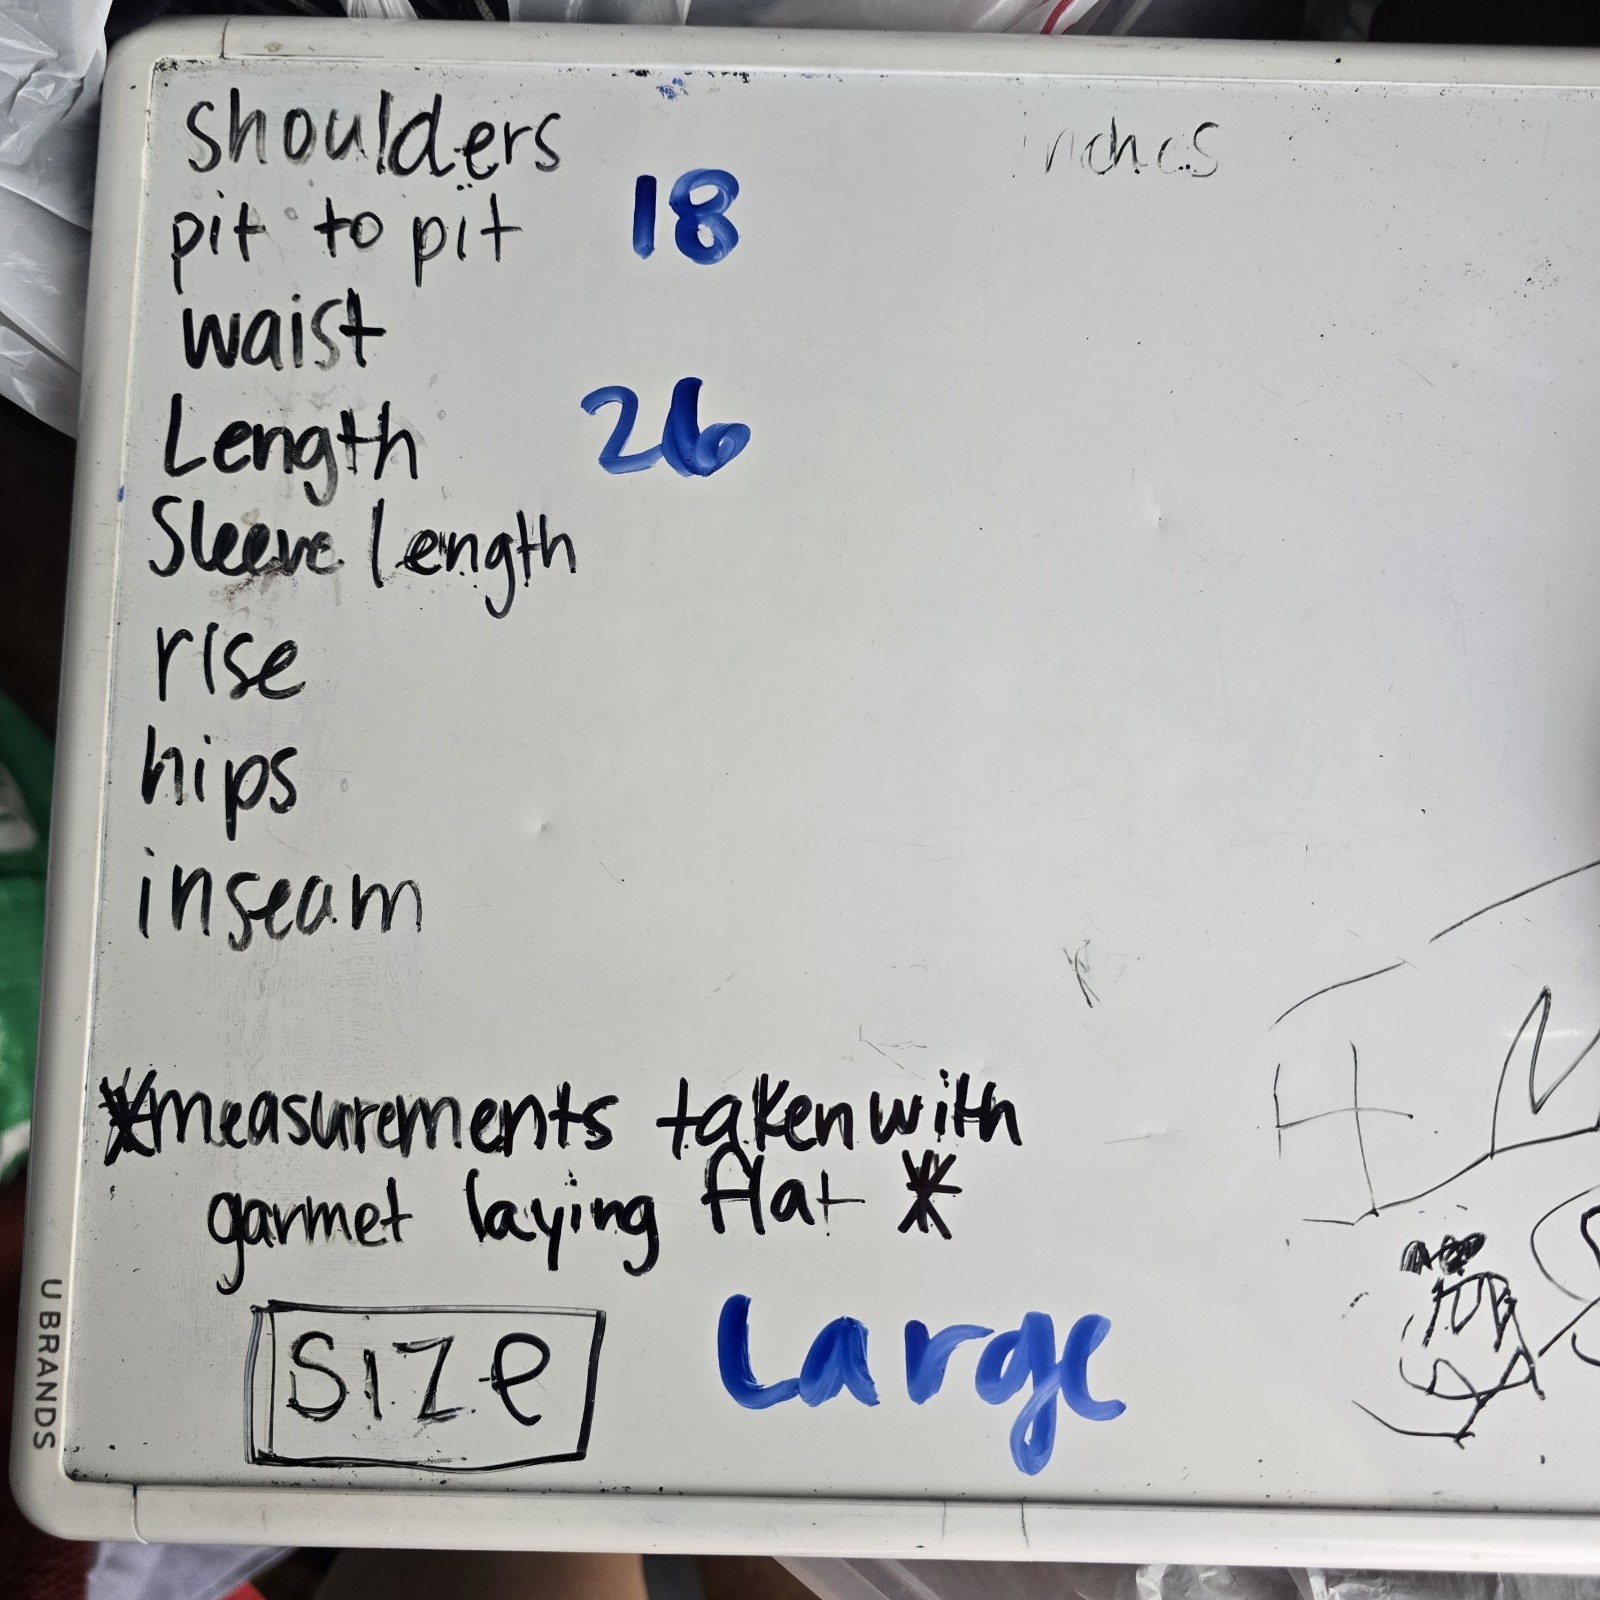 shoulders
inches
pit to pit 18
waist
Length 26
Sleeve length
rise
hips
inseam
*measurements taken with
garmet laying flat *
SIZe Large
U BRANDS